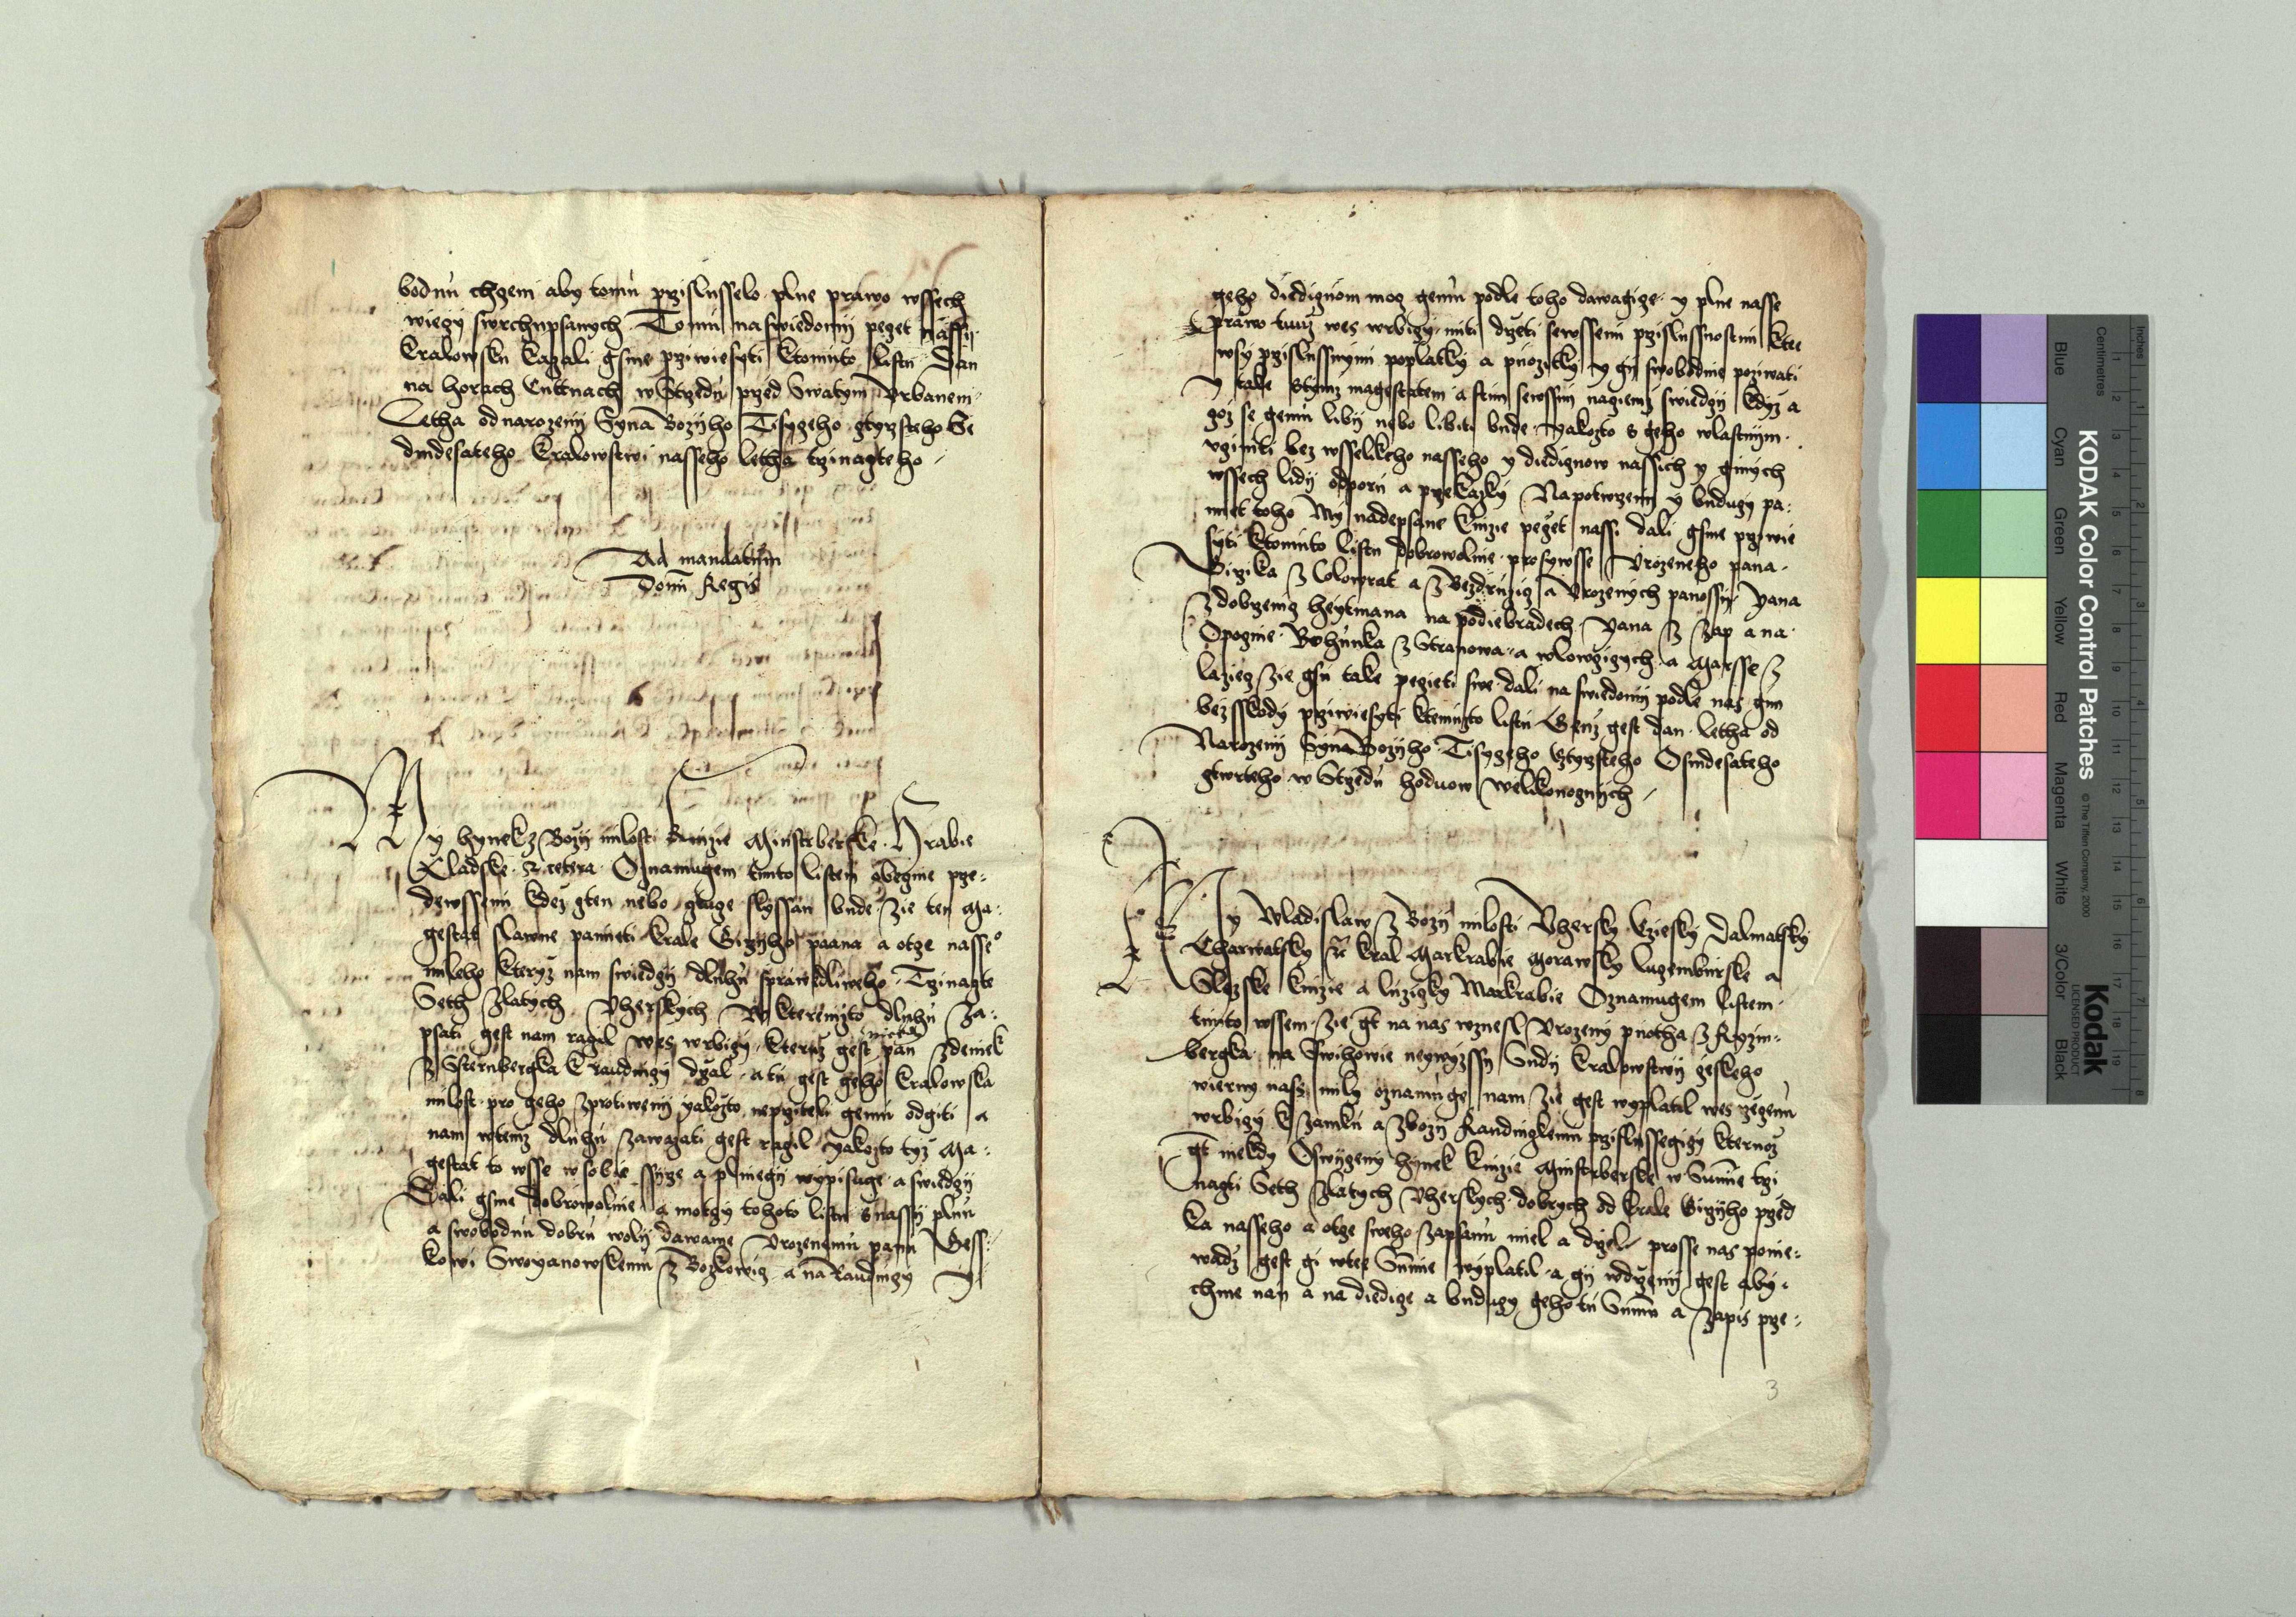 bodnu chczem aby tomu przislusselo plne prawo wssech
wieczy swrchupsanych Tomu na swiedomij peczet nassi
Kralowsku kazali gsme przwiesyti ktomuto listu Dan
na horach Cuttnach w Strzedu przed Swatym Vrbanem
Letha od narozenij Syna Bozijho Tisyczeho cztyrsteho Se
dmdesateho Kralowstwi nasseho letha trzinazteho
Ad mandatum
Domi Regis
My hynek z Bozij milosti kniezie Minstrberske Hrabie
Kladske &cetera Oznamugem timto listem obecznie prze:
dewssemi kdez cten nebo cztucze slyssan bude zie ten Ma:
gestat slawne pamieti krale Girzijho paana a otcze nasseo
mileho kteryz nam swiedczij dluhu sprawedliweho Trzinazte
Seth zlatych Vherskych W kteremzto dluhu za:
psati gest nam raczil wes wrbiczy kteruz gest niekdy pan zdeniek
z Sternbergka k raudniczy drzal a tu gest geho kralowska
milost pro geho zprotiwenij yakozto neprziteli gemu odgiti a
nam wtemz dluhu zawazati gest raczil Yakozto tyz Ma:
gestat to wsse w sobie ssirze a plniegij wypisuge a swiedczij
Dali gsme dobrowolnie a moczy tohoto listu s nassij plnu
a swobodnu dobru wolij dawame Vrozenemu panu Gess:
kowi Swoyanowskemu z Bozkowicz a na Raudniczy y
geho diediczuom mocz gemu podle toho dawagicze y plne nasse
prawo tuuz wes wrbiczy miti drzeti sewssemi przislussnostmi ktee
wsy przislussnymi poplatky a puozitky y gij swobodnie pozwati
y take stymz magestatem a stim sewssim naczemz swiedczij kdyz a
goz se gemu libij nebo libiti bude yakozto s geho wlastnijm
vcziniti bez wsselikeho nasseho y diediczuow nassich y ginych
wssech lidij odporu a przekazky Na potwrzenij y buduczy pa:
miet toho My nadepsane kniezie peczet nassi dali gsme przwie
syti ktomuto listu dobrowolnie prosywsse Vrozeneho pana
Girzika z Colowrat a z Bezdruzicz a Vrozenych panossij Yana
z dobrzenicz heytmana na podiebradech Yana z zap a na
Opocznie Bohunka z Stranowa a wlowczicych a Marsse z
laziecz zie gsu take peczeti swe dali na swiedomij podle nas gim
bezsskody przwiesyti ktemuzto listu Genz gest dan letha od
Narozenij Syna Bozijho Tisyczeho Cztyrsteho Osmdesateho
cztwrteho w Strzedu hoduow welikonocznych
My Wladislaw z Bozij milosti Vhersky Cziesky Dalmatsky
Charwatsky &c kral Markrabie Morawsky luczemburske a
Slezske kniezie a luziczky Markrabie Oznamugem listem
tiimto wssem zie gt na nas wznesl Vrozeny puotha z Ryzm:
bergka na Swihowie neywyzssij Sudij kralowstwij czeskeho
wierny nass mily oznamuge nam zie gest wyplatil wes rzeczenu
wrbiczy k zamku a zbozij Raudnickemu przislussegiczy kteruoz
gt niekdy Oswijceny hynek kniezie Minstrberske w Summe trzi
nazti Seth zlatych Vherskych dobrych od krale Girzijho przed
ka nasseho a otcze sweho zapsanu miel a drzel prosse nas ponie:
wadz gest gi wtee Summe wyplatil a gij wdrzenij gest aby
chme nan a na diedicze a buduczy geho tu Summu a zapis prze:
3
KODAK Color Control Patches
© The Tiffen Company, 2000
Kodak
LICENSED PRODUCT
Inches
Centimetres
Blue
Cyan
Green
Yellow
Red
Magenta
White
3/Color
Black